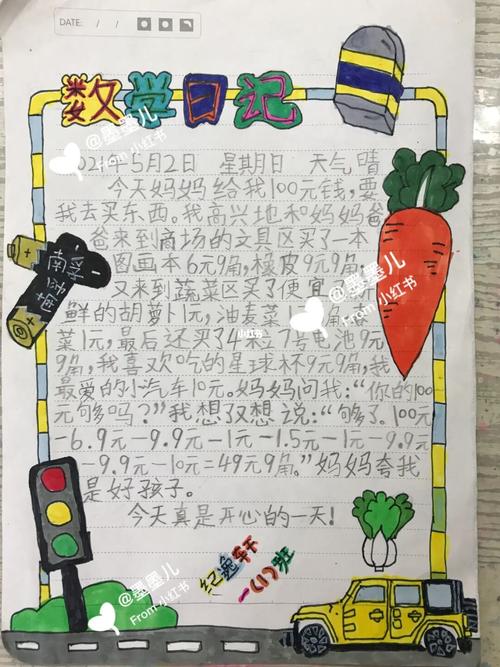 DATE: / /
数学日记
2021年5月2日 星期日 天气晴
今天妈妈给我100元钱,要
我去买东西。我高兴地和妈妈爸
爸来到商场的文具区买了一本
图画本6元9角,橡皮9元9角
又来到蔬菜区买了便宜
鲜的胡萝卜1元,油麦菜1
菜1元,最后还买了4 7号电池9元
9角,我喜欢吃的星球杯9元9角,我
最爱的小汽车10元。妈妈问我:“你的100
元够吗?”我想了又想说:“够了。100元
-6.9元-9.9元-1元-1.5元-1元-9.9元
-9.9元-10元=49元9角。”妈妈夸我
是好孩子。
今天真是开心的一天!
一(1)班
南孚
@墨墨儿
From 小红书
@墨墨儿
From 小红书
小红书
@墨墨儿
From 小红书